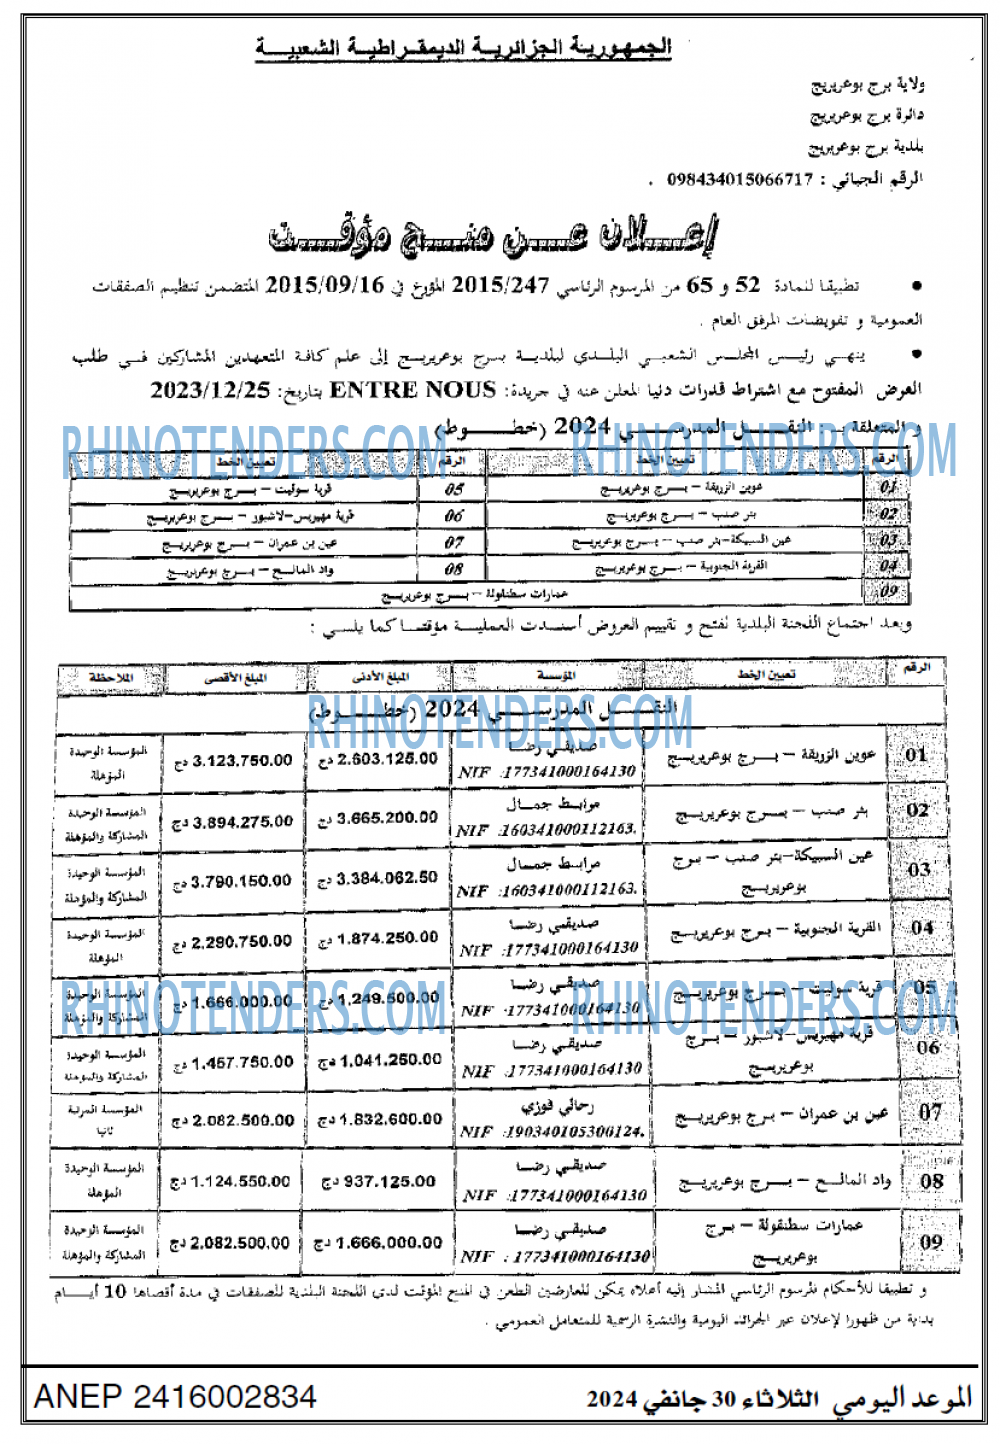 الجمهورية الجزائرية الديمقراطية الشعبية
ولاية برج بوعريريج
دائرة برج بوعريريج
بلدية برج بوعريريج
الرقم الجبائي : 098434015066717 .
إعلان عن منح مؤقت
• تطبيقا للمادة 52 و 65 من المرسوم الرئاسي 2015/247 المؤرخ في 2015/09/16 المتضمن تنظيم الصفقات
العمومية و تفويضات المرفق العام .
• ينهي رئيس المجلس الشعبي البلدي لبلدية برج بوعريريج إلى علم كافة المتعهدين المشاركين في طلب
العرض المفتوح مع اشتراط قدرات دنيا المعلن عنه في جريدة: ENTRE NOUS بتاريخ: 2023/12/25
و المتعلقة بـ: النقل المدرسي 2024 (خطوط)
RHINOTENDERS.COM RHINOTENDERS.COM
الرقم تعيين الخط الرقم تعيين الخط
01 عوين الزريقة – برج بوعريريج 05 قرية سوليت – برج بوعريريج
02 بئر صنب – برج بوعريريج 06 قرية مهيريس–لاشبور – برج بوعريريج
03 عين السبيكة–بئر صنب – برج بوعريريج 07 عين بن عمران – برج بوعريريج
04 القرية الجنوبية – برج بوعريريج 08 واد المالح – برج بوعريريج
09 عمارات سطنقولة – برج بوعريريج
وبعد اجتماع اللجنة البلدية لفتح و تقييم العروض أسندت العملية مؤقتا كما يلي :
الرقم تعيين الخط المؤسسة المبلغ الأدنى المبلغ الأقصى الملاحظة
النقل المدرسي 2024 (خطوط)
RHINOTENDERS.COM
01 عوين الزريقة – برج بوعريريج صديقي رضا NIF :177341000164130 2.603.125.00 دج 3.123.750.00 دج المؤسسة الوحيدة المؤهلة
02 بئر صنب – برج بوعريريج مرابط جمال NIF :160341000112163. 3.665.200.00 دج 3.894.275.00 دج المؤسسة الوحيدة المشاركة والمؤهلة
03 عين السبيكة–بئر صنب – برج بوعريريج مرابط جمال NIF :160341000112163. 3.384.062.50 دج 3.790.150.00 دج المؤسسة الوحيدة المشاركة والمؤهلة
04 القرية الجنوبية – برج بوعريريج صديقي رضا NIF :177341000164130 1.874.250.00 دج 2.290.750.00 دج المؤسسة الوحيدة المؤهلة
05 قرية سوليت – برج بوعريريج صديقي رضا NIF :177341000164130 1.249.500.00 دج 1.666.000.00 دج المؤسسة الوحيدة المشاركة والمؤهلة
RHINOTENDERS.COM RHINOTENDERS.COM
06 قرية مهيريس–لاشبور – برج بوعريريج صديقي رضا NIF :177341000164130 1.041.250.00 دج 1.457.750.00 دج المؤسسة الوحيدة المشاركة والمؤهلة
07 عين بن عمران – برج بوعريريج رحالي فوزي NIF :190340105300124. 1.832.600.00 دج 2.082.500.00 دج المؤسسة المرتبة ثانيا
08 واد المالح – برج بوعريريج صديقي رضا NIF :177341000164130 937.125.00 دج 1.124.550.00 دج المؤسسة الوحيدة المؤهلة
09 عمارات سطنقولة – برج بوعريريج صديقي رضا NIF : 177341000164130 1.666.000.00 دج 2.082.500.00 دج المؤسسة الوحيدة المشاركة والمؤهلة
و تطبيقا للأحكام المرسوم الرئاسي المشار إليه أعلاه يمكن للعارضين الطعن في المنح المؤقت لدى اللجنة البلدية للصفقات في مدة أقصاها 10 أيام
بداية من ظهور الإعلان عبر الجرائد اليومية والنشرة الرسمية للمتعامل العمومي .
الموعد اليومي الثلاثاء 30 جانفي 2024 ANEP 2416002834